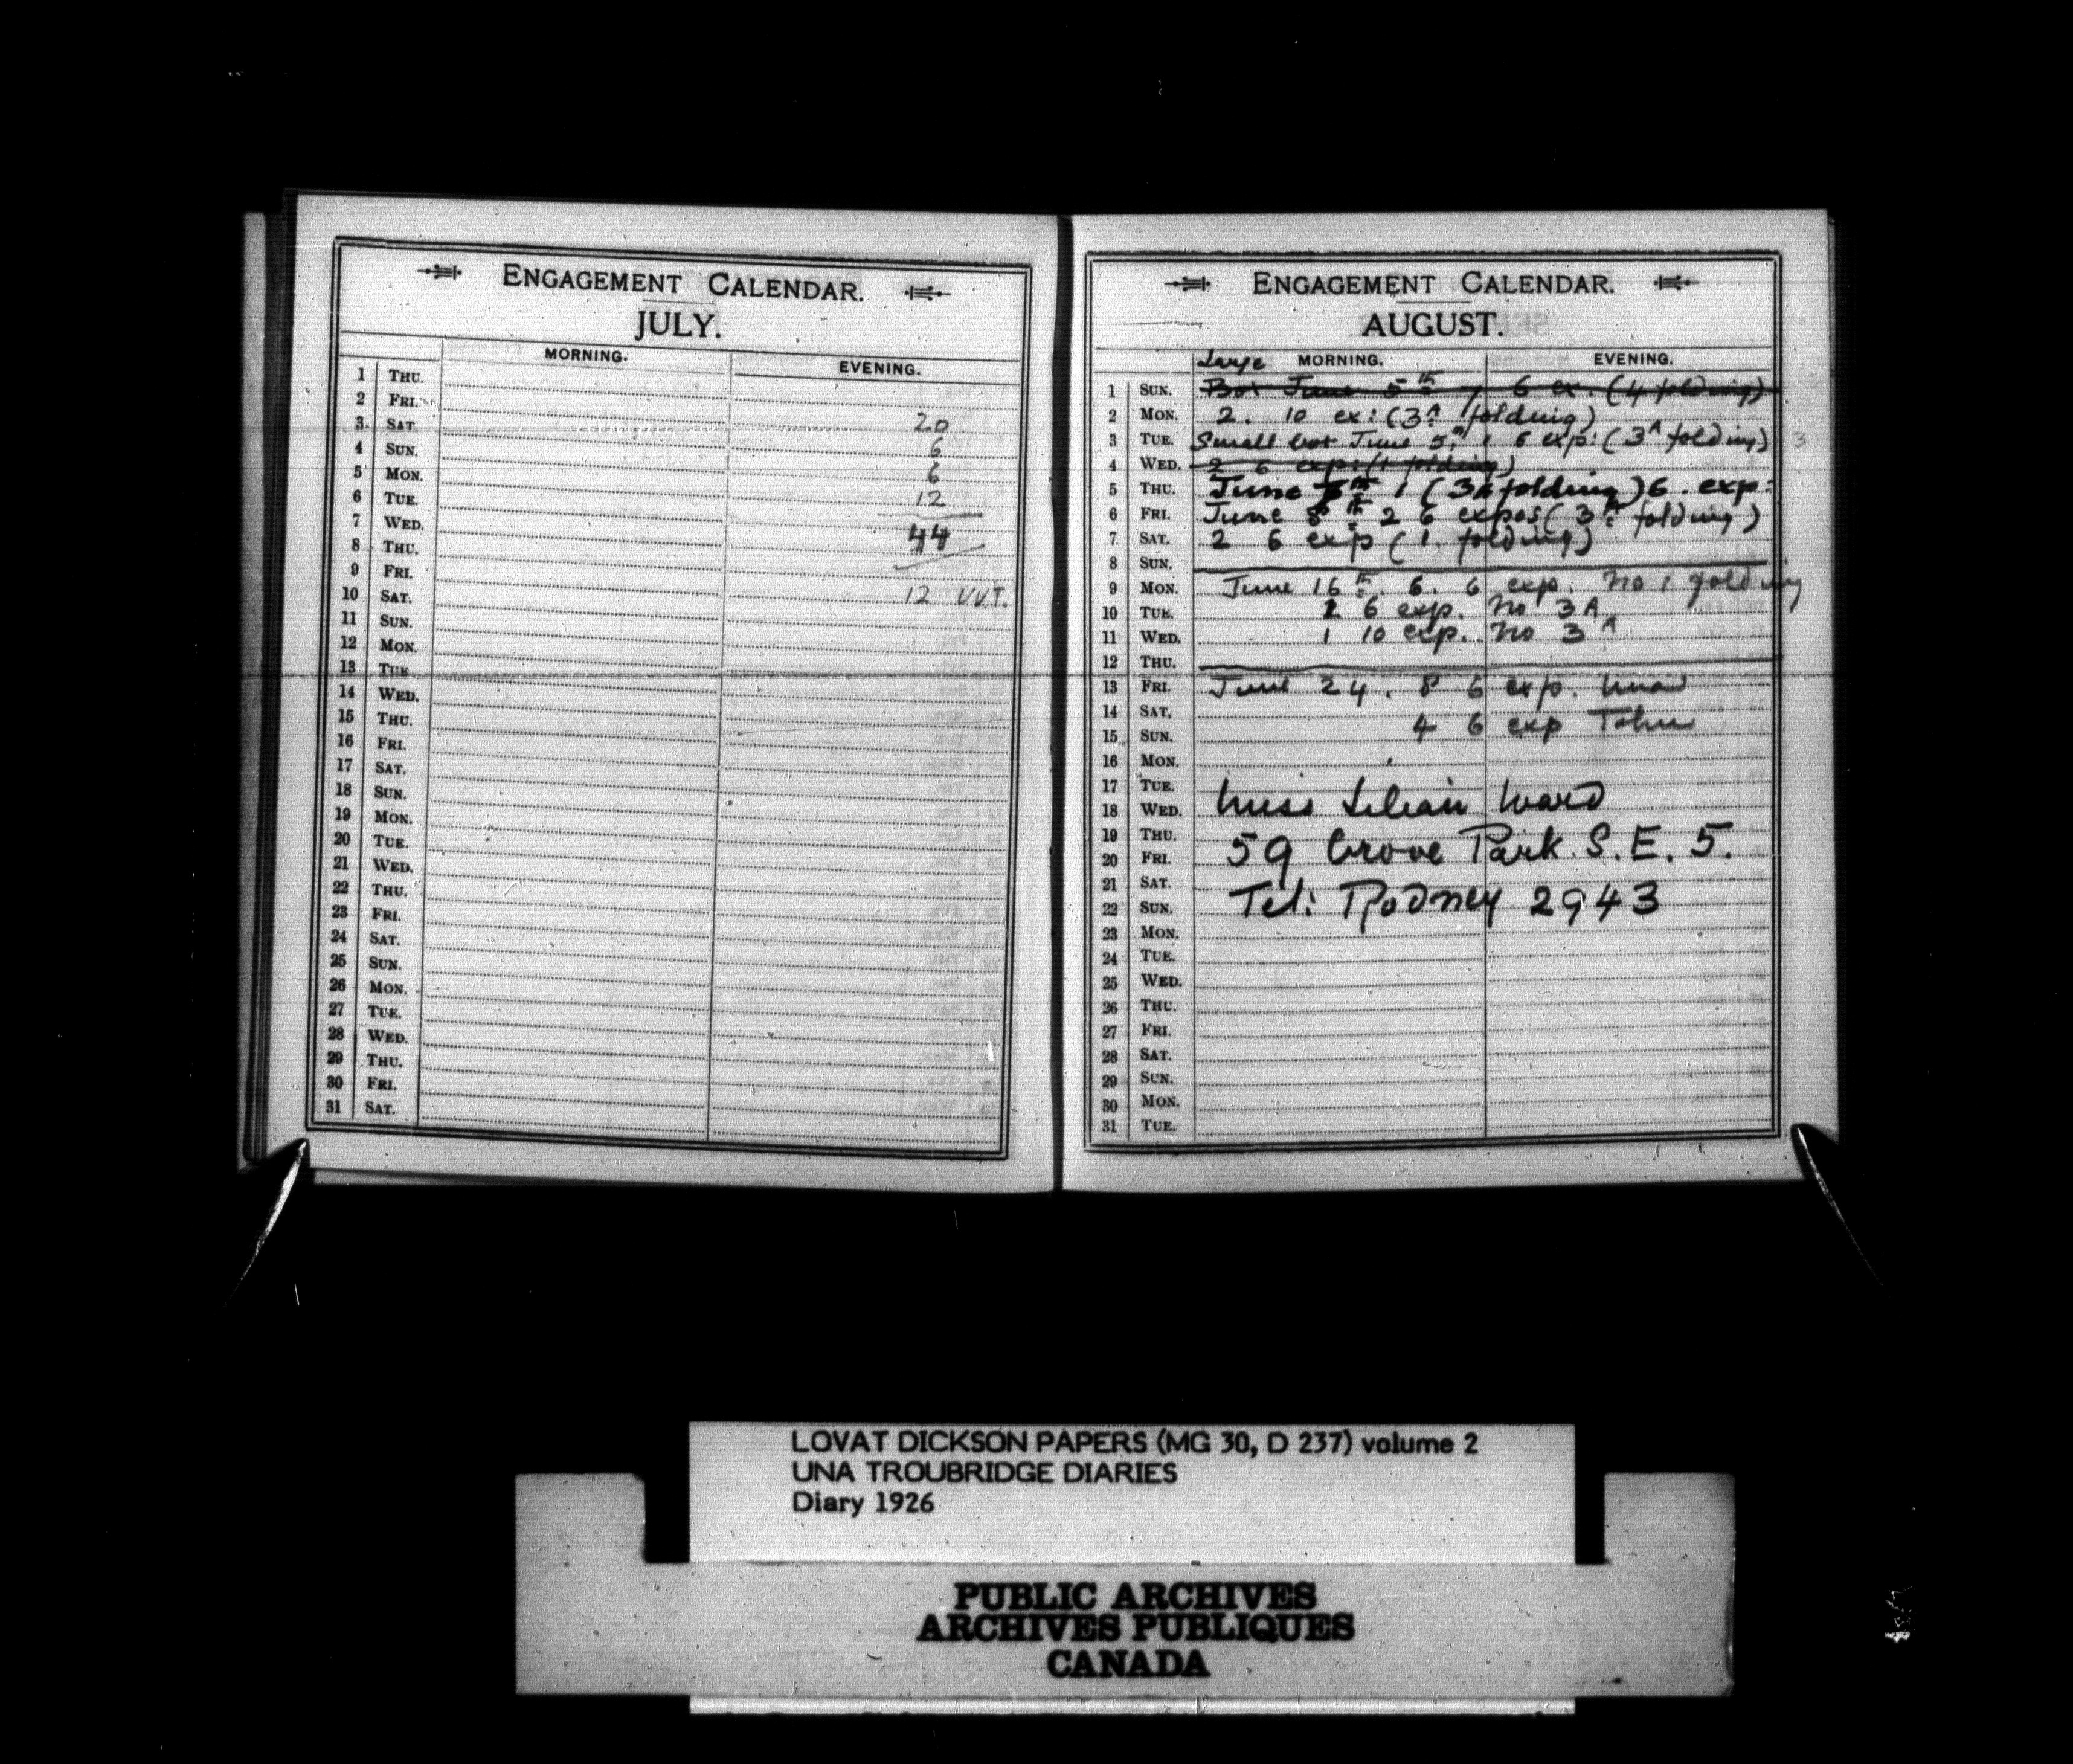 ENGAGEMENT CALENDAR.
JULY.
MORNING. EVENING.
1 THU.
2 FRI.
3 SAT. 20
4 SUN. 6
5 MON. 6
6 TUE. 12
7 WED.
8 THU. 44
9 FRI.
10 SAT. 12 V.V.T.
11 SUN.
12 MON.
13 TUE.
14 WED.
15 THU.
16 FRI.
17 SAT.
18 SUN.
19 MON.
20 TUE.
21 WED.
22 THU.
23 FRI.
24 SAT.
25 SUN.
26 MON.
27 TUE.
28 WED.
29 THU.
30 FRI.
31 SAT.
ENGAGEMENT CALENDAR.
AUGUST.
Large MORNING. EVENING.
1 SUN. Box June 5th 6 ex. (4 folding)
2 MON. 2. 10 ex: (3A folding)
3 TUE. Small box June 5th 1 6 exp: (3A folding) 3
4 WED. 2 6 exp: (1 folding)
5 THU. June 1 (3A folding) 6. exp:
6 FRI. June 8th 2 6 expos (3A folding)
7 SAT. 2 6 exp (1. folding)
8 SUN.
9 MON. June 16th. 6. 6 exp. No 1 folding
10 TUE. 6 exp. No 3A
11 WED. 1 10 exp. No 3A
12 THU.
13 FRI. June 24. 8 6 exp. Una
14 SAT.
15 SUN. 4 6 exp John
16 MON.
17 TUE.
18 WED. Miss Lilian Ward
19 THU.
20 FRI. 59 Grove Park S.E. 5.
21 SAT.
22 SUN. Tel: Rodney 2943
23 MON.
24 TUE.
25 WED.
26 THU.
27 FRI.
28 SAT.
29 SUN.
30 MON.
31 TUE.
LOVAT DICKSON PAPERS (MG 30, D 237) volume 2
UNA TROUBRIDGE DIARIES
Diary 1926
PUBLIC ARCHIVES
ARCHIVES PUBLIQUES
CANADA